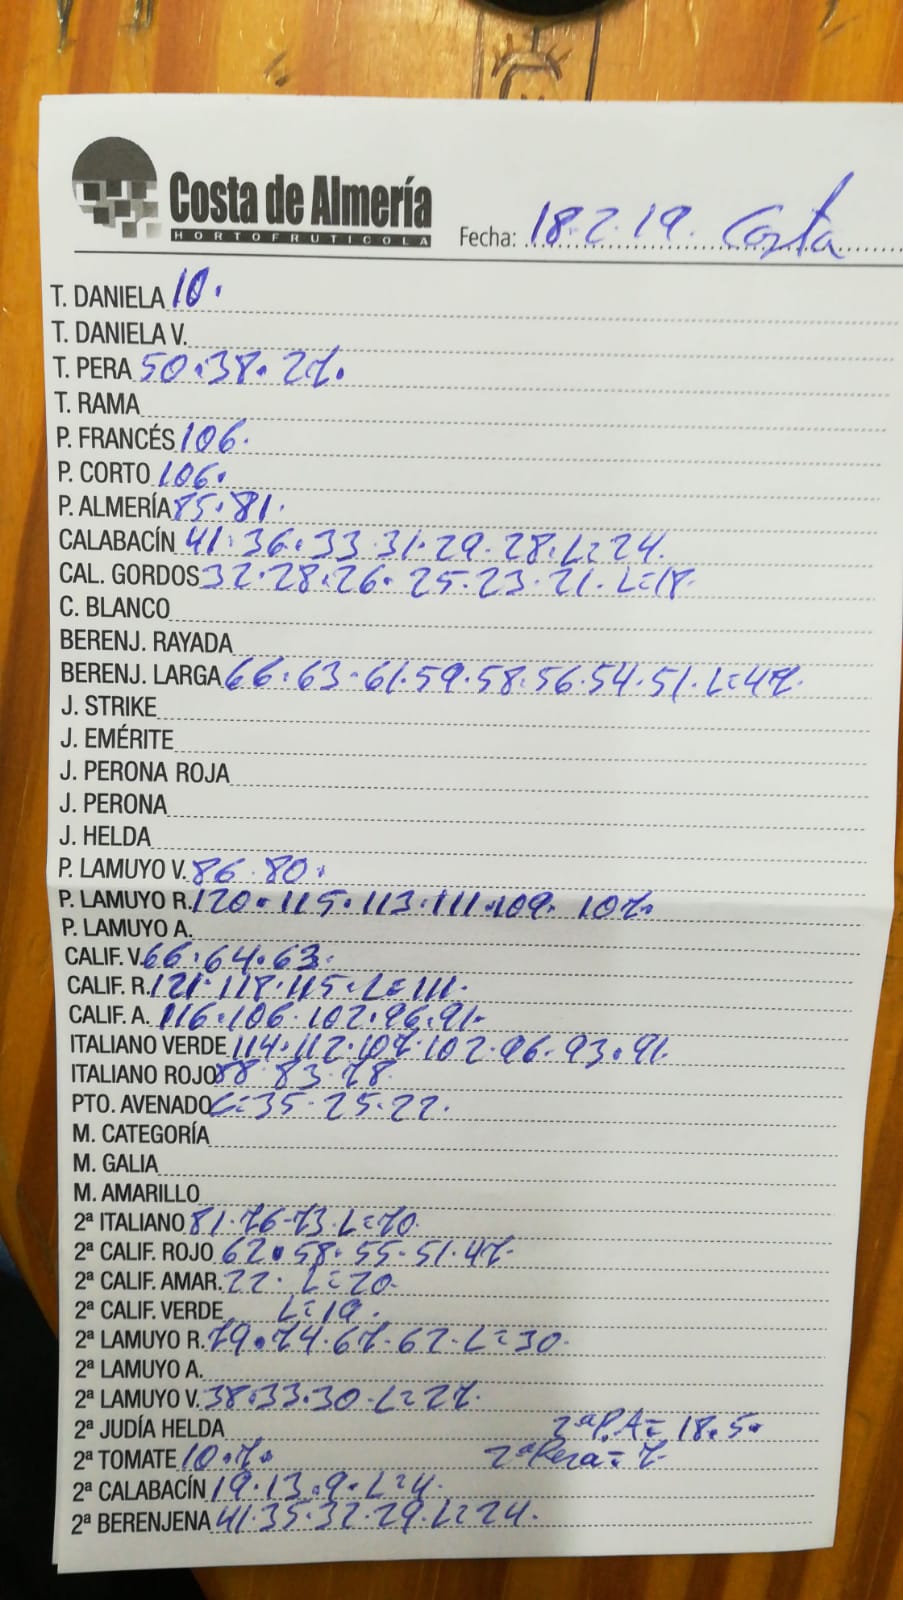 Costa de Almería
HORTOFRUTICOLA
Fecha: 18.2.19. Costa
T. DANIELA 10.
T. DANIELA V.
T. PERA 50.38.27.
T. RAMA
P. FRANCÉS 106.
P. CORTO 106.
P. ALMERÍA 85.81.
CALABACÍN 41.36.33.31.29.28.L=24.
CAL. GORDOS 32.28.26.25.23.21.L=18.
C. BLANCO
BERENJ. RAYADA
BERENJ. LARGA 66.63.61.59.58.56.54.51.L=47.
J. STRIKE
J. EMÉRITE
J. PERONA ROJA
J. PERONA
J. HELDA
P. LAMUYO V. 86.80.
P. LAMUYO R. 120.115.113.111.109.107.
P. LAMUYO A.
CALIF. V. 66.64.63.
CALIF. R. 121.118.115.L=111.
CALIF. A. 116.106.102.96.91.
ITALIANO VERDE 114.112.107.102.96.93.91.
ITALIANO ROJO 88.83.78
PTO. AVENADO L=35.25.22.
M. CATEGORÍA
M. GALIA
M. AMARILLO
2ª ITALIANO 81.76.73.L=70.
2ª CALIF. ROJO 62.58.55.51.47.
2ª CALIF. AMAR. 22. L=20.
2ª CALIF. VERDE L=19.
2ª LAMUYO R. 79.74.67.62.L=30.
2ª LAMUYO A.
2ª LAMUYO V. 38.33.30.L=27.
2ª JUDÍA HELDA 2ªP.A= 18.5.
2ª TOMATE 10.7. 2ªPera=7.
2ª CALABACÍN 19.13.9.L=4.
2ª BERENJENA 41.35.32.29.L=24.